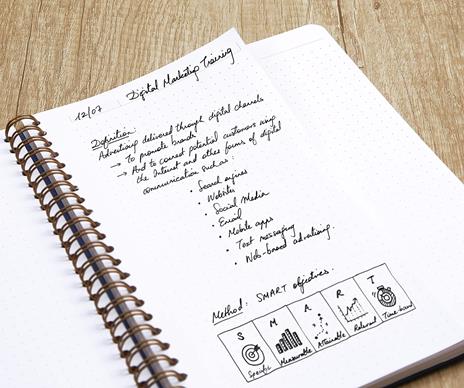 12/07 Digital Marketing Training
Definition:
Advertising delivered through digital channels
→ To promote brands
→ And to connect potential customers using
the Internet and other forms of digital
communication such as:
• Search engines
• Websites
• Social Media
• Email
• Mobile apps
• Text messaging
• Web-based advertising.
Method: SMART objectives.
S M A R T
Specific Measurable Attainable Relevant Time-based